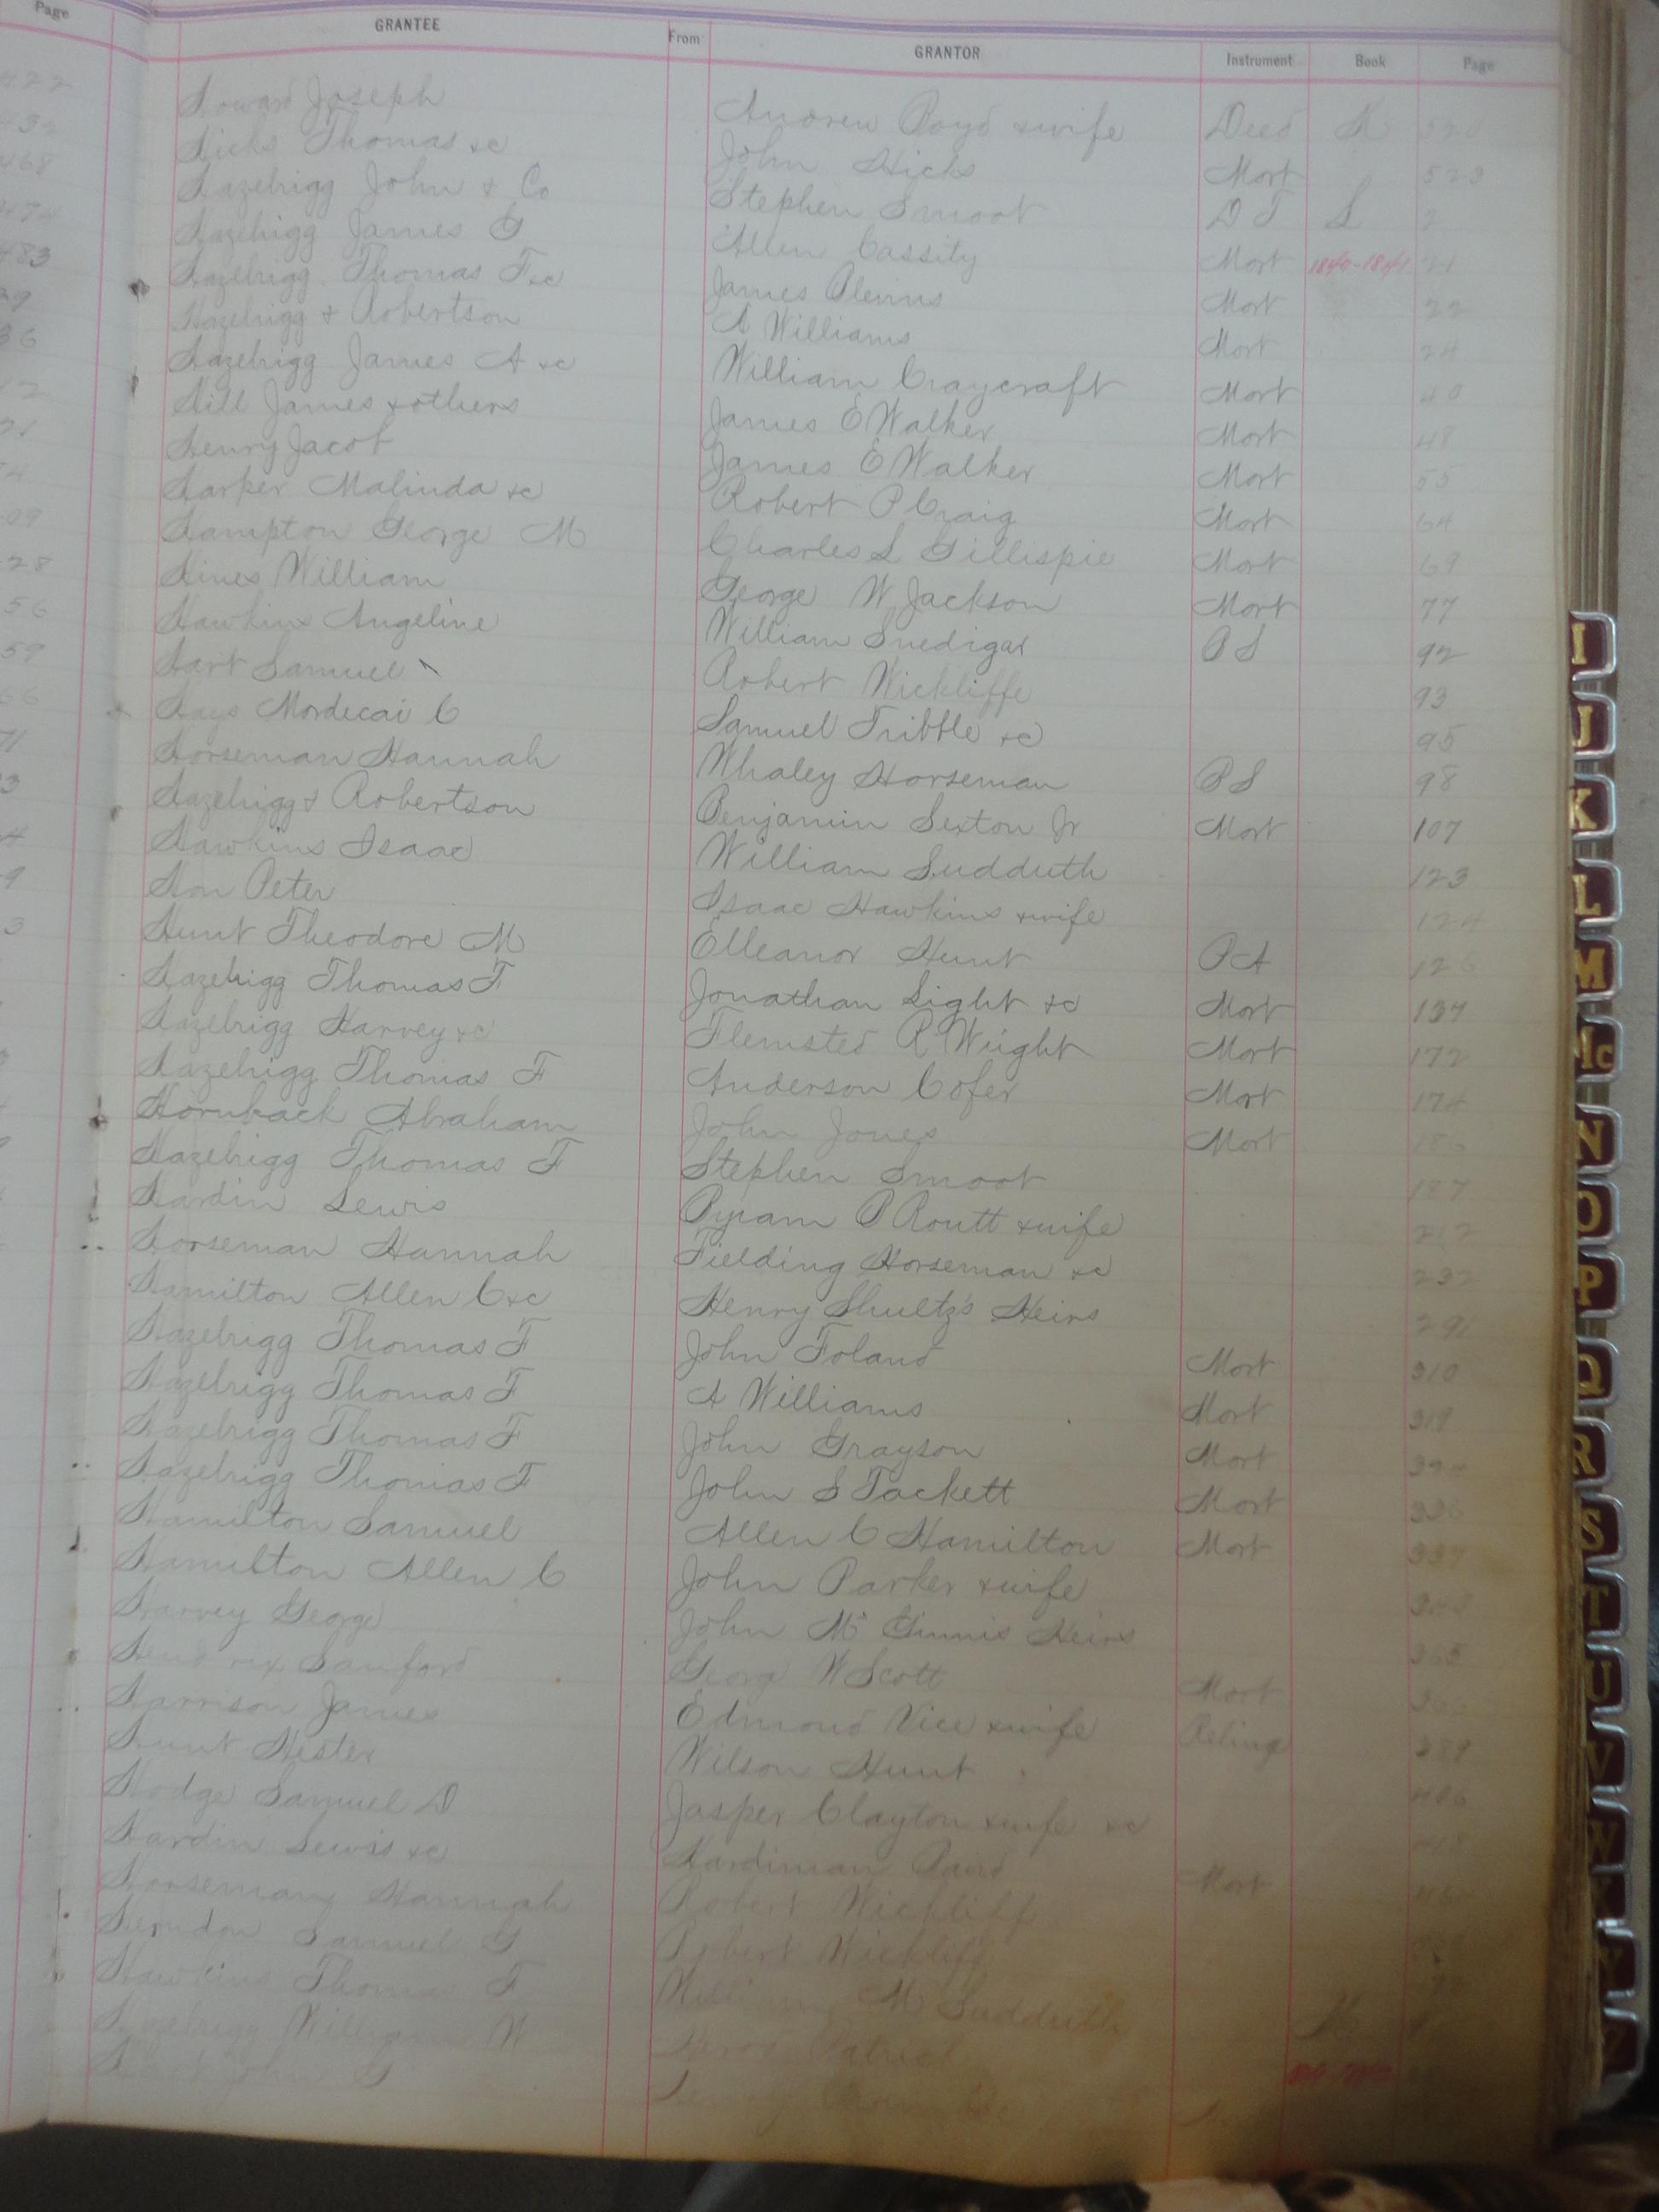 Page GRANTEE From GRANTOR Instrument Book Page
Howard Joseph Andrew Boyd & wife Deed K 520
Hicks Thomas &c John Hicks Mort 523
Hazelrigg John & Co Stephen Smoot D T L 2
Hazelrigg James G Allen Cassity Mort 1840-1841 21
Hazelrigg Thomas F &c James Blevins Mort 22
Hazelrigg & Robertson A Williams Mort 24
Hazelrigg James A &c William Craycraft Mort 40
Hill James & others James E Walker Mort 48
Henry Jacob James E Walker Mort 55
Harper Malinda &c Robert P Craig Mort 64
Hampton George M Charles L Gillispie Mort 69
Hines William George W Jackson Mort 77
Hawkins Angeline William Snedigar B S 92
Hart Samuel Robert Wickliffe 93
Hays Mordecai C Samuel Tribble &c 95
Horseman Hannah Whaley Horseman B S 98
Hazelrigg & Robertson Benjamin Sexton Jr Mort 107
Hawkins Isaac William Sudduth 123
Hon Peter Isaac Hawkins & wife 124
Hunt Theodore M Elleanor Hunt P A 126
Hazelrigg Thomas F Jonathan Light &c Mort 137
Hazelrigg Harvey &c Flemsted R Wright Mort 172
Hazelrigg Thomas F Anderson Cofer Mort 174
Hornback Abraham John Jones Mort
Hazelrigg Thomas F Stephen Smoot 187
Hardin Lewis Byram P Routt & wife 212
Horseman Hannah Fielding Horseman &c 232
Hamilton Allen C &c Henry Shultz's Heirs 291
Hazelrigg Thomas F John Foland Mort 310
Hazelrigg Thomas F A Williams Mort 319
Hazelrigg Thomas F John Grayson Mort
Hazelrigg Thomas F John S Tackett Mort 336
Hamilton Samuel Allen C Hamilton Mort 337
Hamilton Allen C John Parker & wife
Harvey George John McGinnis Heirs 365
Hendrix Sanford George W Scott Mort
Harrison James Edmond Vice & wife Relinq 389
Hunt Hester Wilson Hunt
Hodge Samuel D Jasper Clayton & wife &c
Hardin Lewis &c Hardiman Mort
Horseman Hannah Robert Wickliff
Herndon Samuel G Robert Wickliff
Hawkins Thomas F William M Sudduth
Hazelrigg William W
John G
I
J
K
L
M
Mc
N
O
P
Q
R
S
T
U
V
W